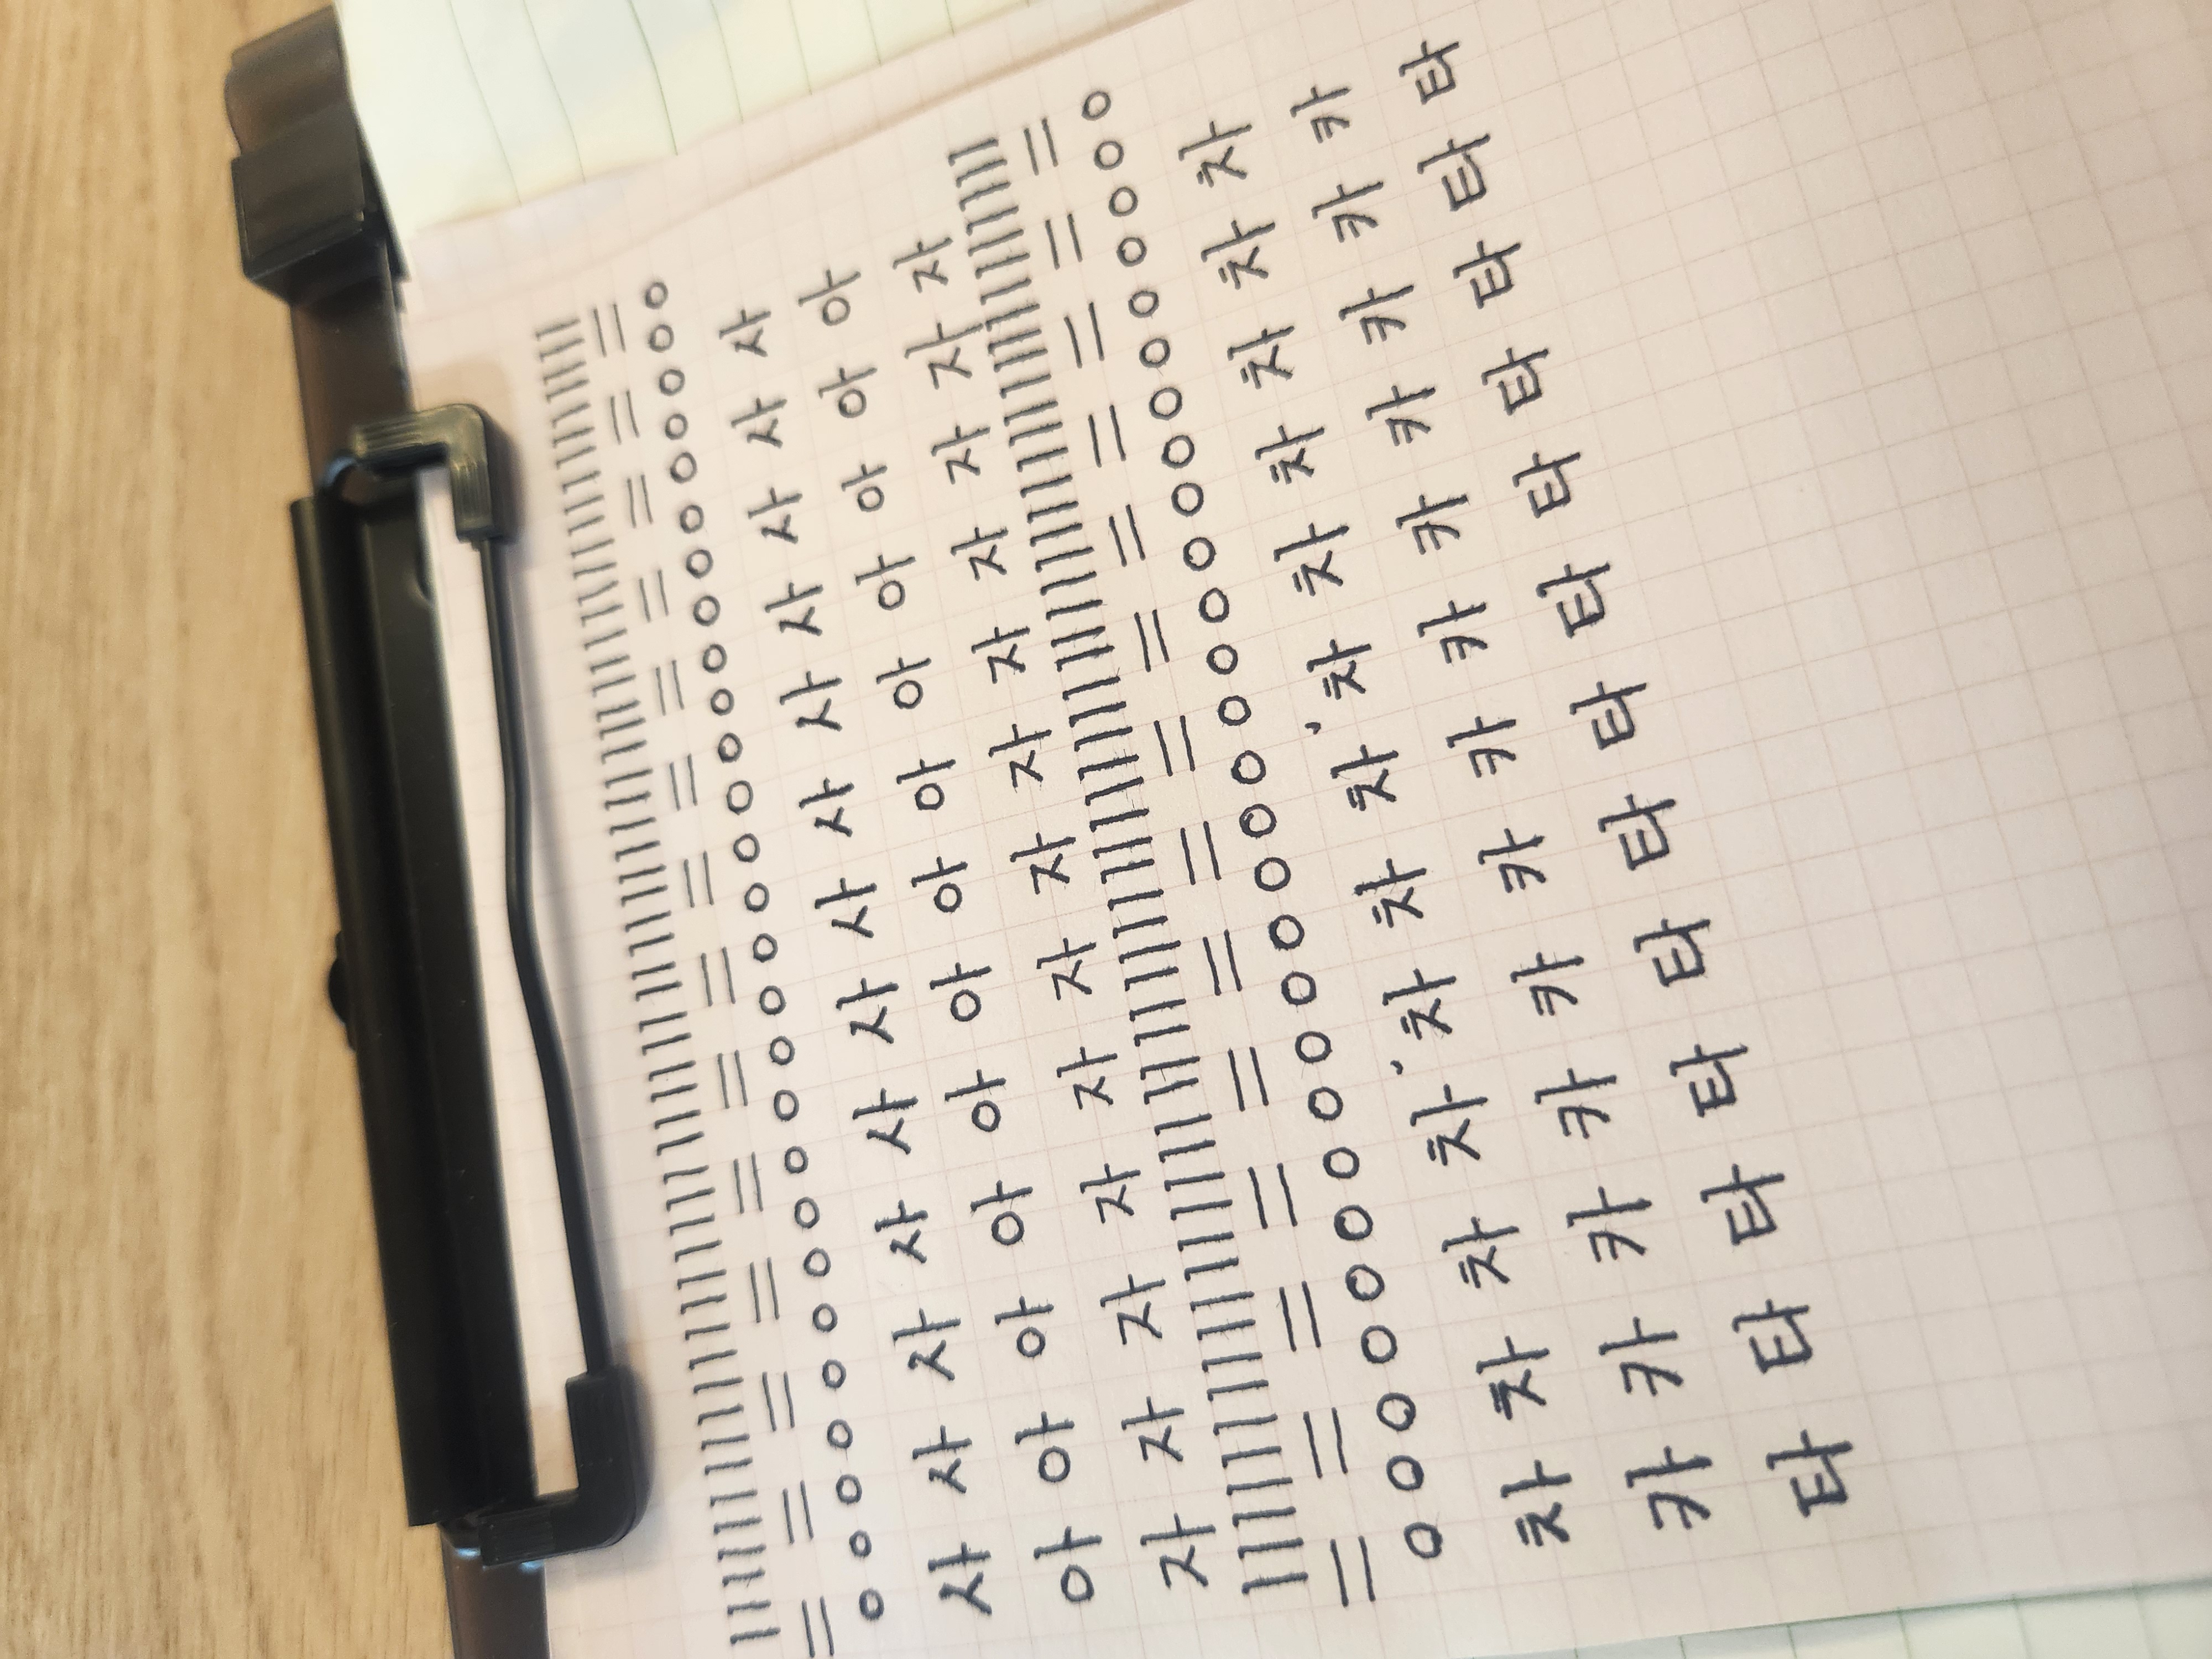 사 사 사 사 사 사 사 사 사 사 사 사 사
아 아 아 아 아 아 아 아 아 아 아 아 아
자 자 자 자 자 자 자 자 자 자 자 자 자
차 차 차 차 차 차 차 차 차 차 차 차 차
카 카 카 카 카 카 카 카 카 카 카 카 카
타 타 타 타 타 타 타 타 타 타 타 타 타